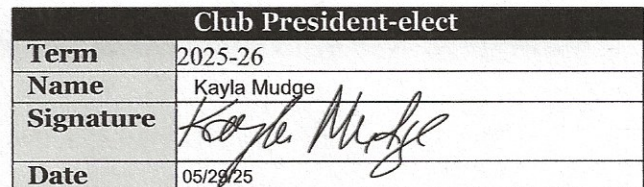 Club President-elect
Term 2025-26
Name Kayla Mudge
Signature Kayla Mudge
Date 05/29/25